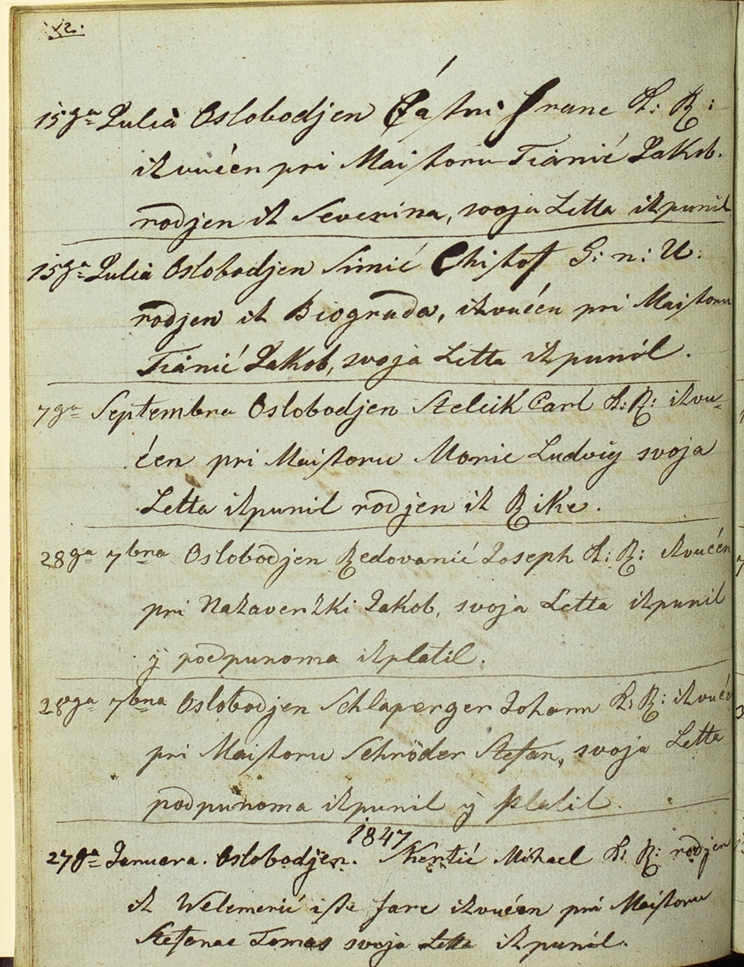 12.
15ga Julia Oslobodjen Franc K: R:
izvučen pri Majstoru Tianić Jakob.
rodjen iz Severina, svoja Letta izpunil
15ga Julia Oslobodjen Simić Christof G: n: U:
rodjen iz Biograda, izvučen pri Majstoru
Tianić Jakob, svoja Letta izpunil.
7ga Septembra Oslobodjen Stelcik Carl K: R: izvu-
čen pri Majstoru Monie Ludvig svoja
Letta izpunil rodjen iz Rike.
28ga 7bra Oslobodjen Redovanić Joseph K: R: izvučen
pri Nazaverzki Jakob, svoja Letta izpunil
ÿ podpunoma izplatil.
28ga 7bra Oslobodjen Schlaperger Johann K: R: izvuč
pri Majstoru Schröder Stefan, svoja Letta
podpunoma izpunil ÿ platil.
1847
27ga Januara. Oslobodjen. Mihael K: R: rodjen
iz Welemerić iste fare izvučen pri Majstoru
Stefanac Tomas svoja Letta izpunil.